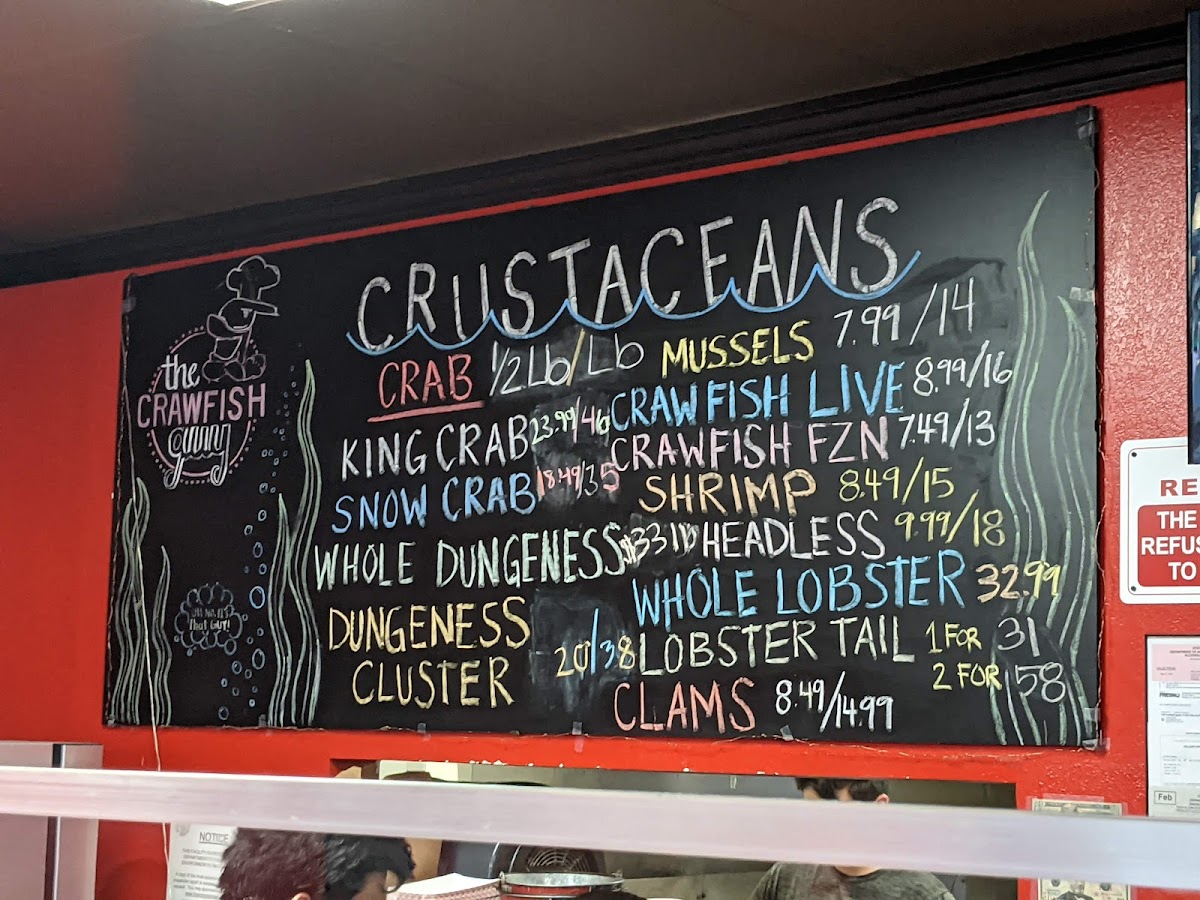 CRUSTACEANS
the
CRAWFISH
CRAB 1/2Lb/Lb
KING CRAB 23.99/46
SNOW CRAB 18.49/35
WHOLE DUNGENESS $33 lb
DUNGENESS
CLUSTER 20/38
MUSSELS 7.99/14
CRAWFISH LIVE 8.99/16
CRAWFISH FZN 7.49/13
SHRIMP 8.49/15
HEADLESS 9.99/18
WHOLE LOBSTER 32.99
LOBSTER TAIL 1 FOR 31
2 FOR 58
CLAMS 8.49/14.99
that Guy!
RE
THE
REFUS
TO
Feb
NOTICE